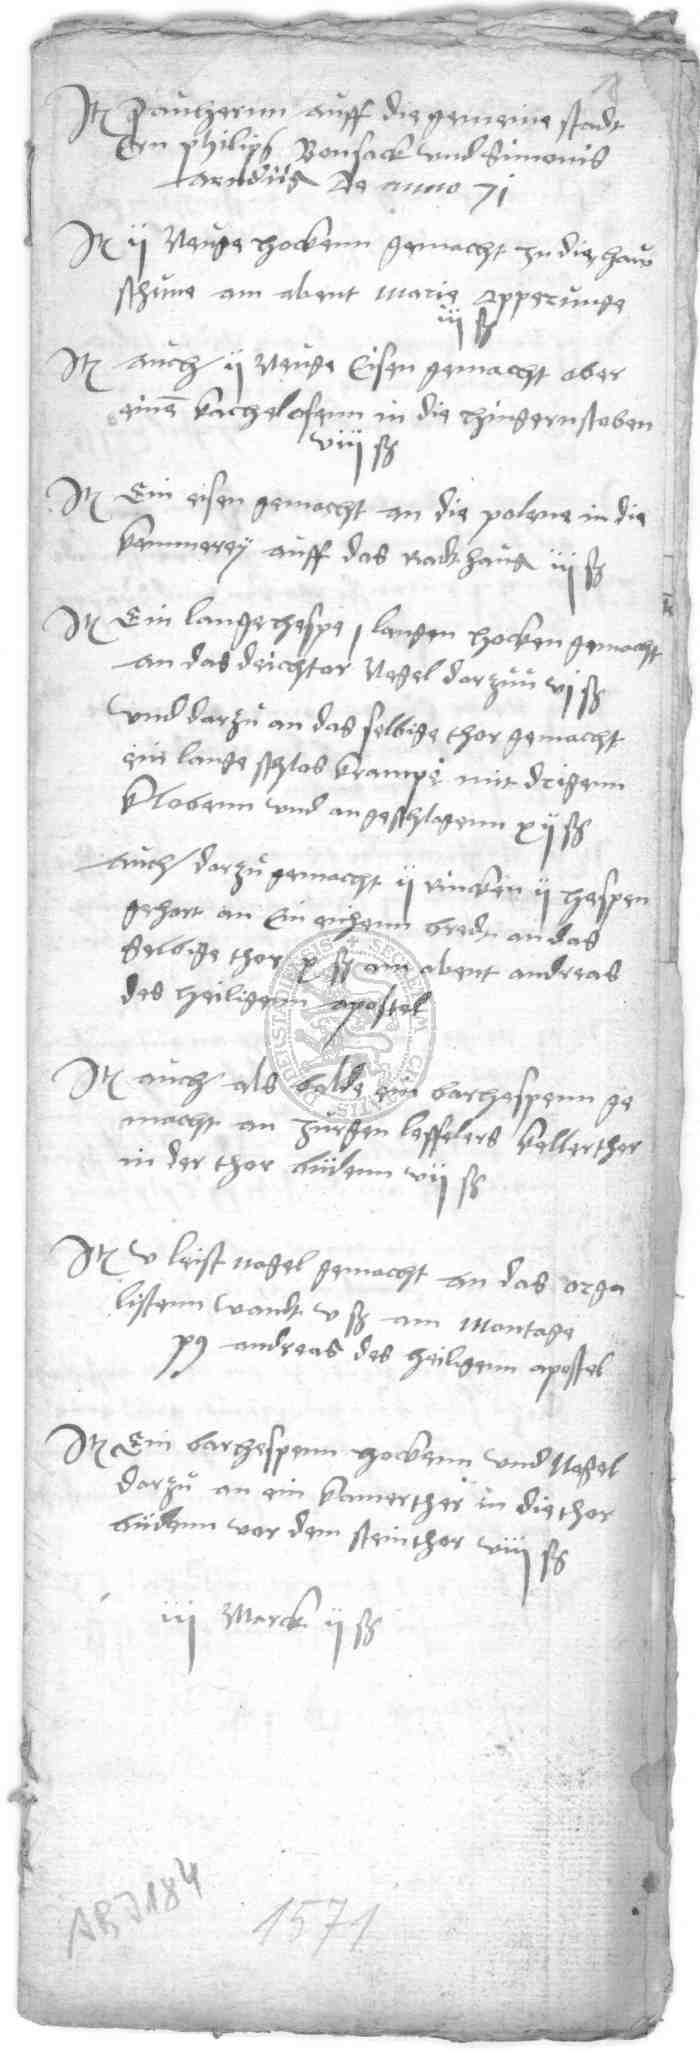 Jt bauherrn auff die gemeine stadt
Ern philips Bonsack und Simonis
Arndiis De anno 71
Jt ij Neuge hockenn gemacht zu die haw
schune am abent Marie opperunge
iij ß
Jt auch ij Neuge Eisen gemacht ober
einē kachelofenn in die hingernstoben
viij ß
Jt Ein eisen gemacht an die polene in die
kemmerey auff das radthaus iij ß
Jt Ein lange hespe j langen hocken gemacht
an das deichtor Negel darzuu vj ß
und darzu an das selbige thor gemacht
ein lange schlos krampe mit drigenn
klobenn und angeschlagenn xij ß
auch darzu gemacht ij rincken ij hespen
gehort an Ein eichenn bredt an das
selbige thor x ß am abent andreas
des heiligenn apostel
Jt auch als balde ein barhespenn ge
macht an Jurgen leffelers kellerther
in der thor budenn vij ß
Jt v leist nagel gemacht an das orga
listenn wandt v ß am Montage
p9 andreas des heiligenn apostel
Jt Ein barhespenn hockenn und Nagel
darzu an ein kamerther in die thor
budenn vor dem steinthor viij ß
iij Marck ij ß
AB J184
1571